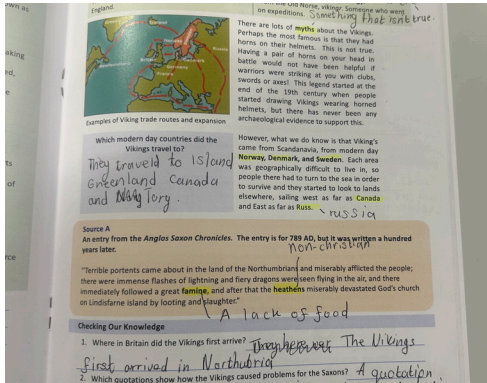 own as
England.
Old Norse, vikingr. Someone who went
on expeditions. Something that isnt true.
aking
ed,
e
ts
of
rce
Russia
France
Examples of Viking trade routes and expansion
There are lots of myths about the Vikings.
Perhaps the most famous is that they had
horns on their helmets. This is not true.
Having a pair of horns on your head in
battle would not have been helpful if
warriors were striking at you with clubs,
swords or axes! This legend started at the
end of the 19th century when people
started drawing Vikings wearing horned
helmets, but there has never been any
archaeological evidence to support this.
Which modern day countries did the
Vikings travel to?
They traveld to Island
Greenland Canada
and Tory.
However, what we do know is that Viking's
came from Scandanavia, from modern day
Norway, Denmark, and Sweden. Each area
was geographically difficult to live in, so
people there had to turn to the sea in order
to survive and they started to look to lands
elsewhere, sailing west as far as Canada
and East as far as Russ.
russia
Source A
An entry from the Anglos Saxon Chronicles. The entry is for 789 AD, but it was written a hundred
years later.
non-christian
"Terrible portents came about in the land of the Northumbrians and miserably afflicted the people;
there were immense flashes of lightning and fiery dragons were seen flying in the air, and there
immediately followed a great famine, and after that the heathens miserably devastated God's church
on Lindisfarne island by looting and slaughter."
A lack of food
Checking Our Knowledge
1. Where in Britain did the Vikings first arrive? The Vikings
first arrived in Northubria
2. Which quotations show how the Vikings caused problems for the Saxons? A quotation